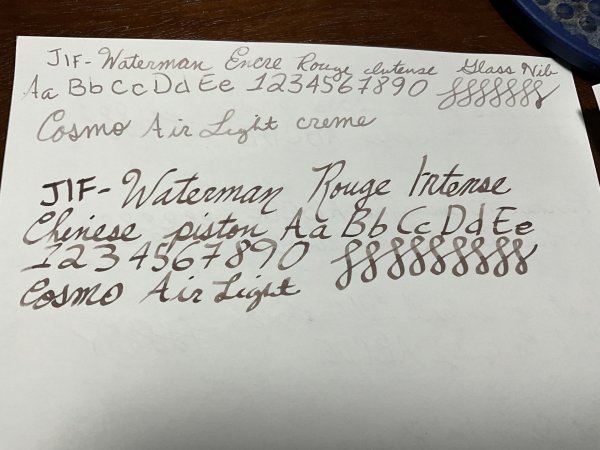 JIF- Waterman Encre Rouge Intense Glass Nib
Aa Bb Cc Dd Ee 1234567890
Cosmo Air Light creme
JIF- Waterman Rouge Intense
Chinese piston Aa Bb Cc Dd Ee
1234567890
Cosmo Air Light